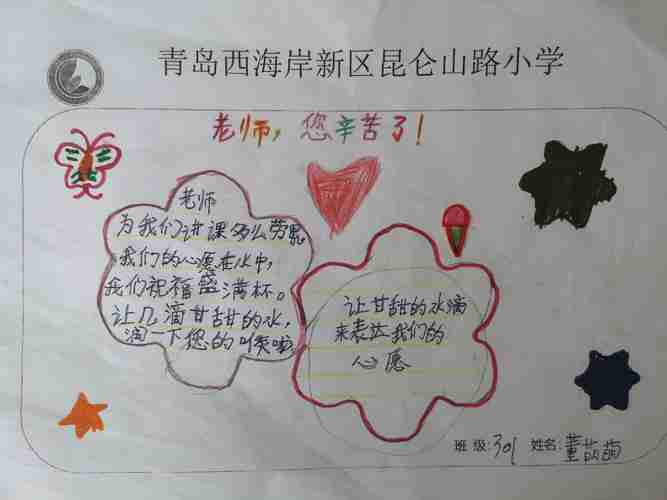 青岛西海岸新区昆仑山路小学
老师，您辛苦了！
老师
为我们讲课多么劳累
我们的心愿在水中，
我们祝福盛满杯。
让几滴甘甜的水，
润一下您的
让甘甜的水滴
来表达我们的
心愿
班级:301 姓名:董